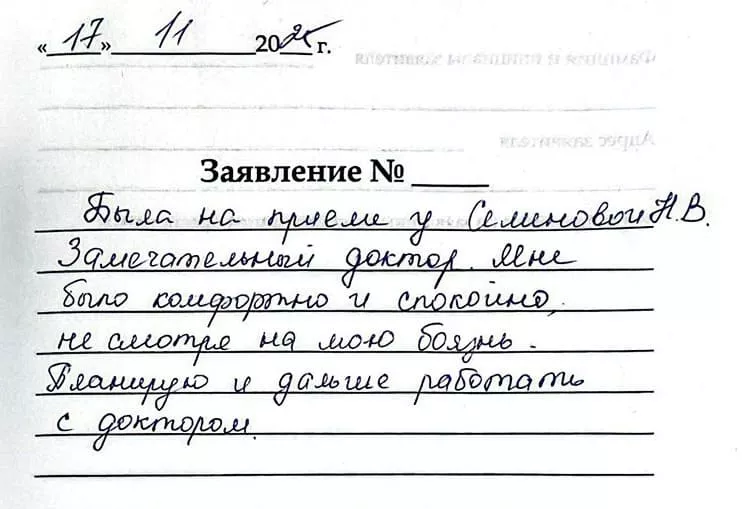 «17» 11 2025 г.
Фамилия и инициалы заявителя
Адрес заявителя
Заявление № ____
Была на приеме у Семиновой Н.В.
Замечательный доктор. Мне
было комфортно и спокойно,
не смотре на мою боязнь.
Планирую и дальше работать
с доктором.